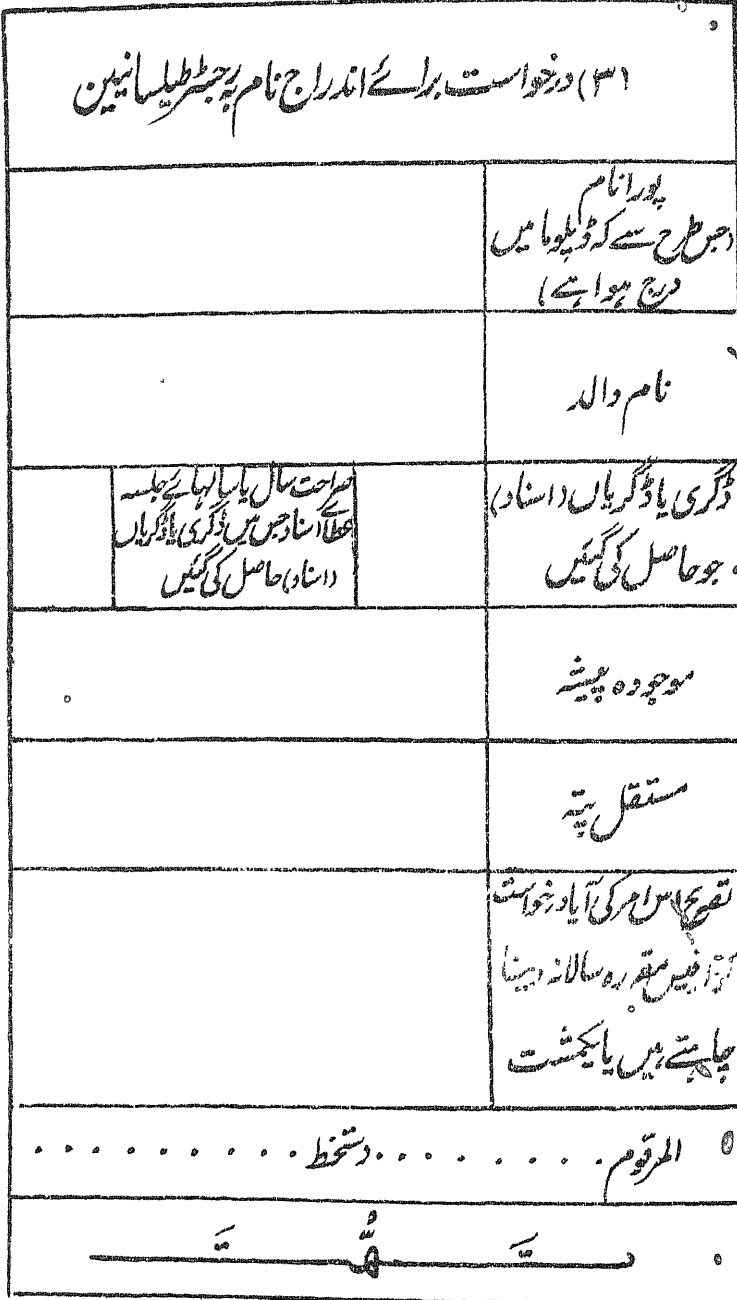 (۳۱) درخواست برائے اندراج نام بہ رجسٹر طیلسانیین
پورا نام
(جس طرح سے کہ ڈپلوما میں
درج ہوا ہے)
نام والد
ڈگری یا ڈگریاں (اسناد)
جو حاصل کی گئیں
صراحت سال یا سالہائے جلسہ
عطائے اسناد جس میں ڈگری یا ڈگریاں
(اسناد) حاصل کی گئیں
موجودہ پیشہ
مستقل پتہ
تصریح اس امر کی آیا درخواست
گزار فیس مقررہ سالانہ دینا
چاہتے ہیں یا یکمشت
المرقوم . . . . . . . . دستخط . . . . . . . . .
تَمَّتْ